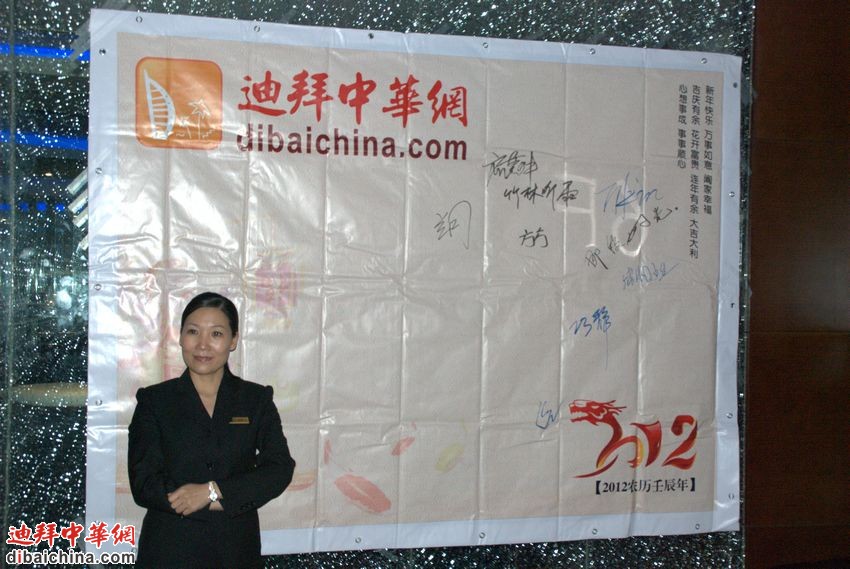 迪拜中華網
dibaichina.com
新年快乐 万事如意 阖家幸福
吉庆有余 花开富贵 连年有余 大吉大利
心想事成 事事顺心
竹林听雨
方芳
巧静
2012
【2012农历壬辰年】
迪拜中華網
dibaichina.com